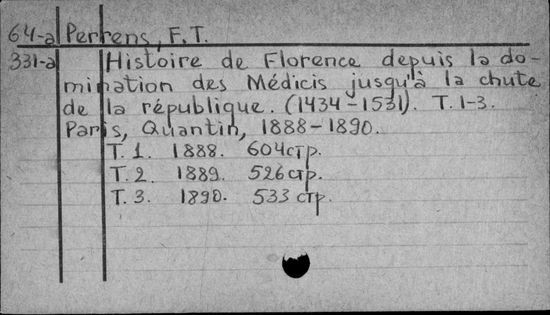 64-a Perrens, F.T.
331-a Histoire de Florence depuis la do-
mination des Médicis jusqu'à la chute
de la république. (1434-1531). T. 1-3.
Paris, Quantin, 1888-1890.
T. 1. 1888. 604 стр.
T. 2. 1889. 526 стр.
T. 3. 1890. 533 стр.